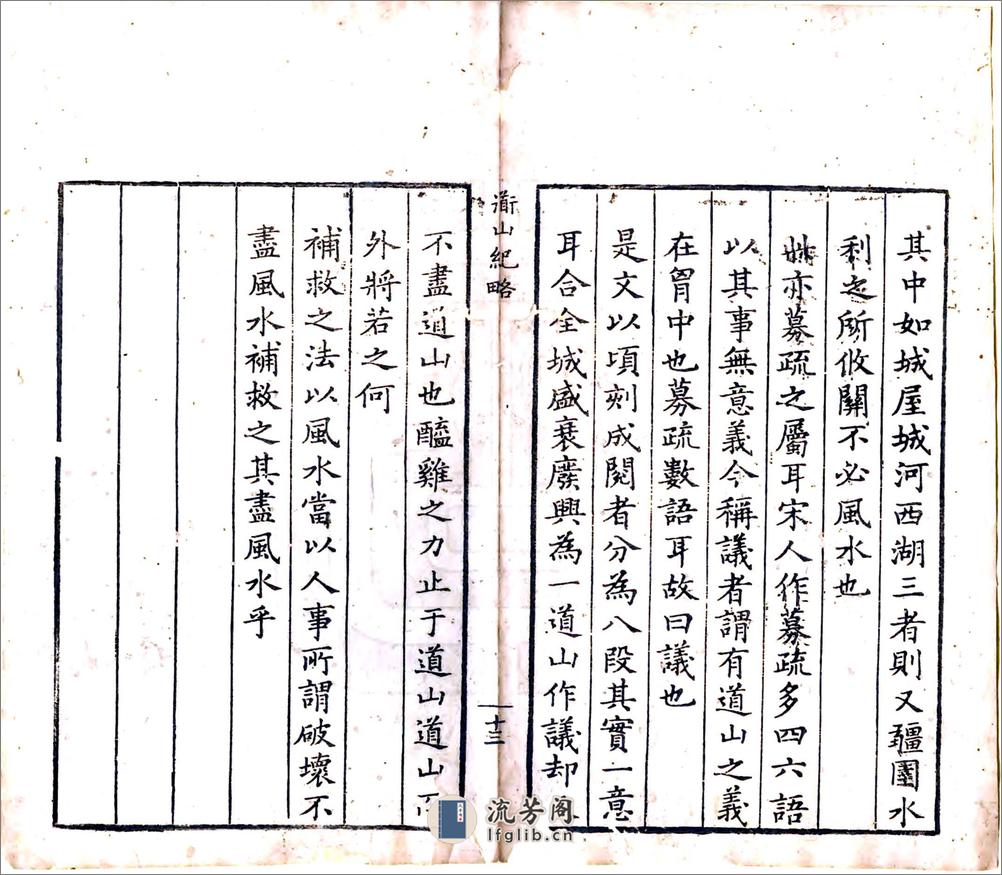 其中如城屋城河西湖三者則又疆圉水
利之所攸關不必風水也
此亦募疏之屬耳宋人作募疏多四六語
以其事無意義今稱議者謂有道山之義
在胷中也募疏數語耳故曰議也
是文以頃刻成閱者分為八段其實一意
耳合全城盛衰廢興為一道山作議却
道山紀略
十三
不盡道山也醯雞之力止于道山道山
外將若之何
補救之法以風水當以人事所謂破壞不
盡風水補救之其盡風水乎
流芳阁
lfglib.cn